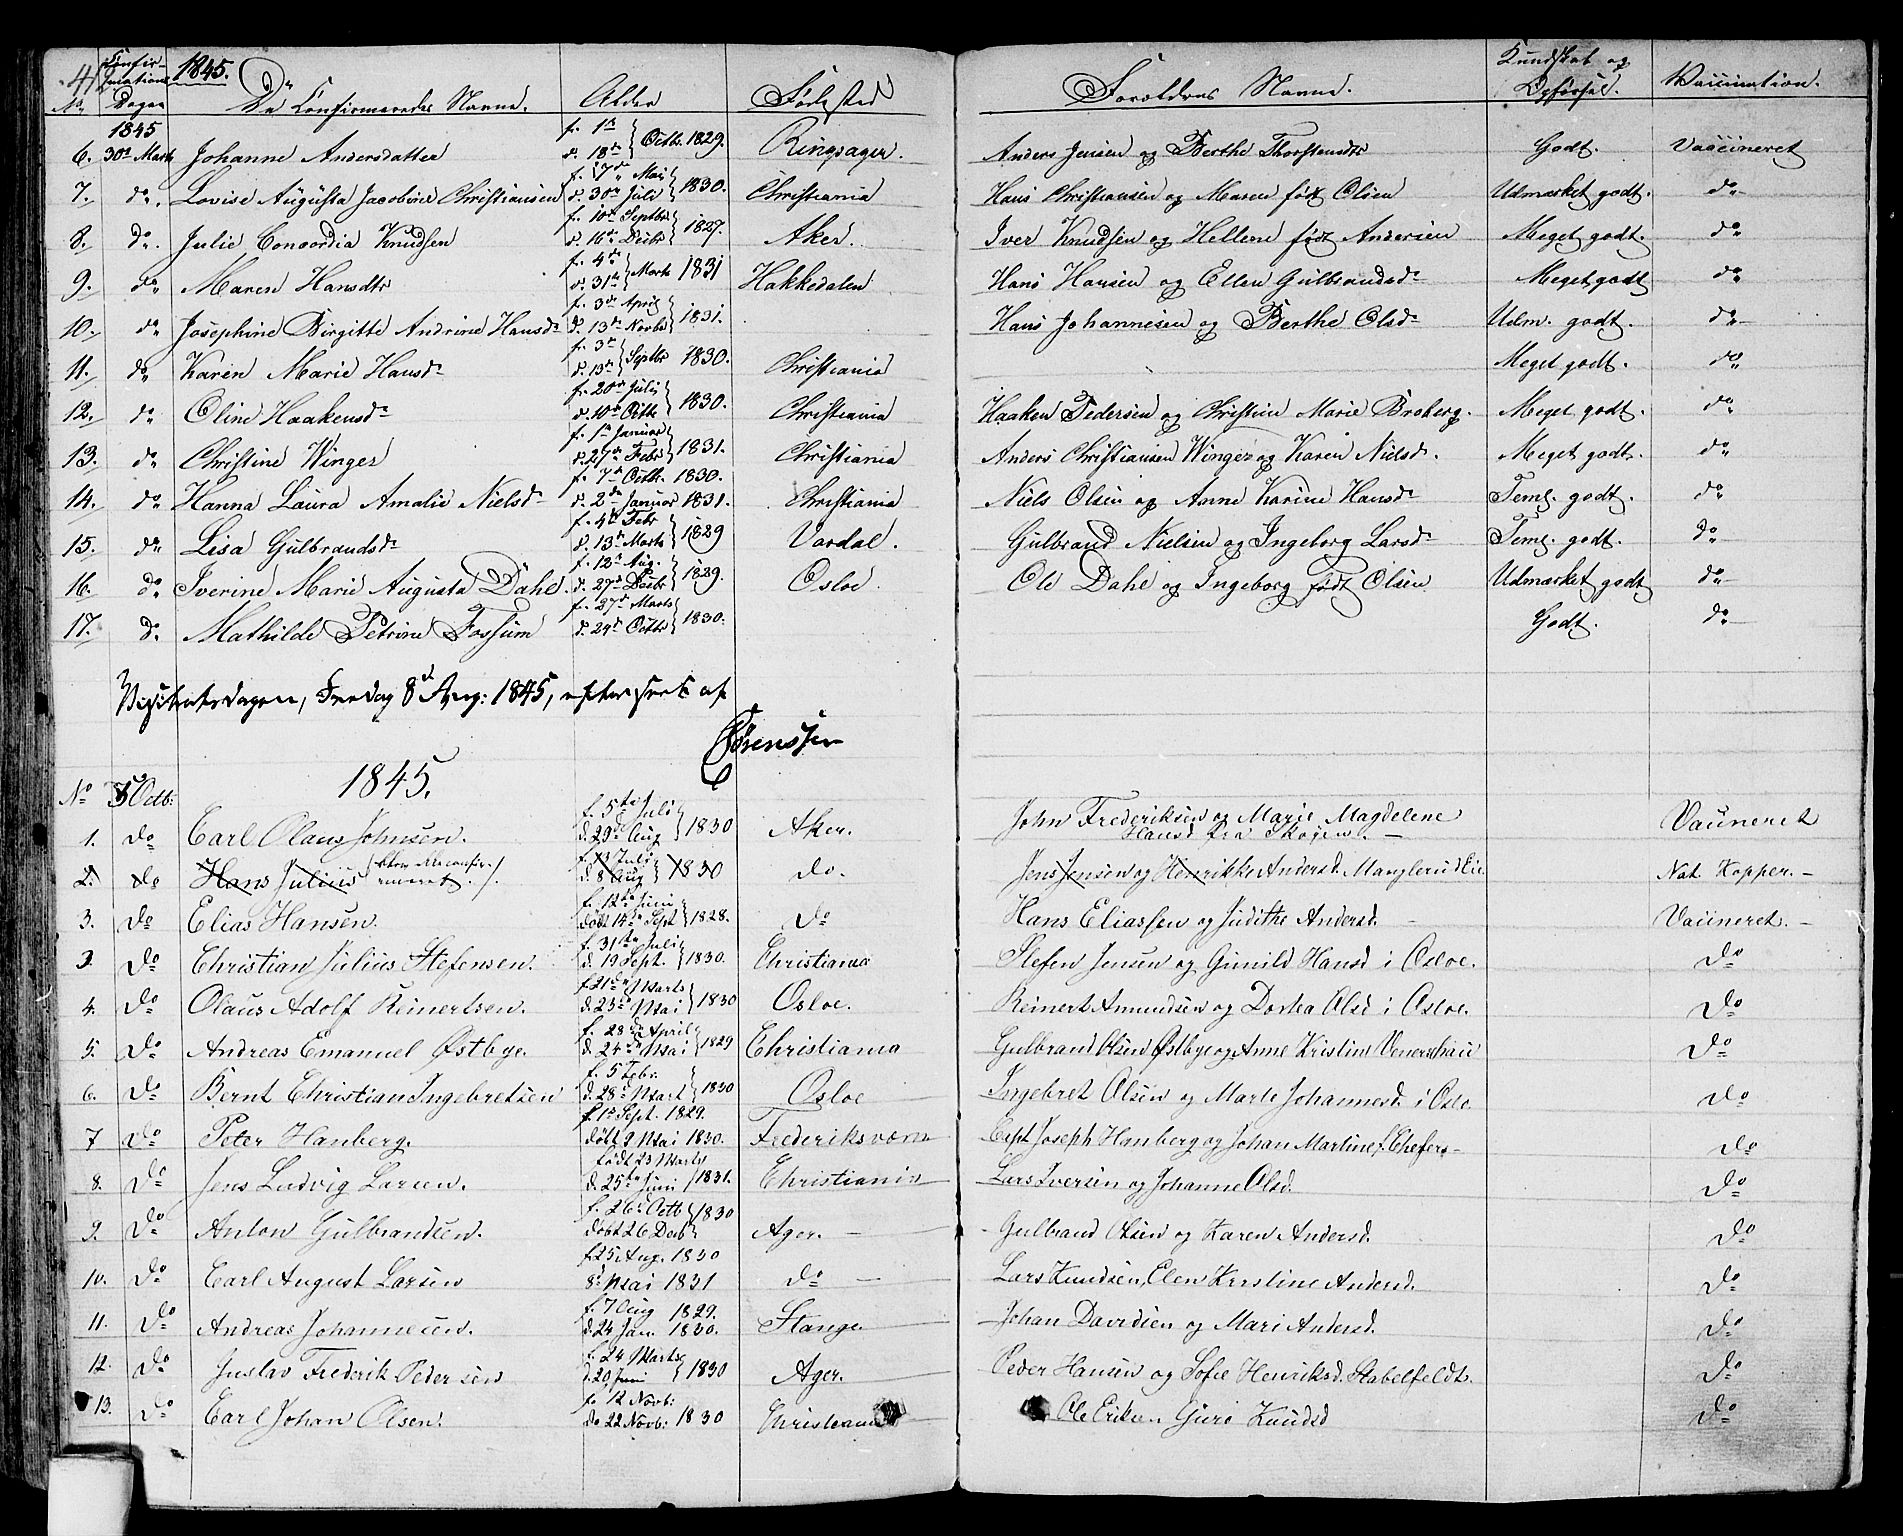 41
Confir-
mations
Dagen
1845.
No
De Confirmeredes Navne.
Alder
Fødested
Forældres Navne.
Kundskab og
Opførsel.
Vaccination.
1845
6. 30te Marts Johanne Andersdatter f. 1te d. 18de Octbr 1829. Ringsager. Anders Jensen og Berthe Thorstensdtr Godt. Vaccineret
7. do. Lovise Augusta Jacobine Christiansen f. 7de Mai d. 30te Juli 1830. Christiania Hans Christiansen og Maren født Olsen Udmærket godt. do
8. do. Julie Concordia Knudsen f. 10de Septbr d. 16de Decbr 1827. Aker. Iver Knudsen og Hellene født Andersen Meget godt. do
9. do Maren Hansdtr f. 4de d. 31te Marts 1831 Hakkedalen Hans Hansen og Ellen Gulbrandsd. Meget godt do
10. do Josephine Birgitte Andrine Hansd. f. 3de April d. 13de Novbr 1831. Hans Johannesen og Berthe Olsd. Udm. godt. do
11. do Karen Marie Hansd. f. 3de d. 13de Septbr 1830. Christiania Meget godt. do
12. do Oline Haakensd. f. 20de Juli d. 10de Octbr 1830. Christiania Haaken Pedersen og Christine Marie Broberg. Meget godt. do
13. do Christine Winger f. 1te Januar d. 27de Febr 1831. Christiania Anders Christiansen Winger og Karen Nielsd. Meget godt. do
14. do Hanna Laura Amalie Nielsd. f. 7de Octbr. 1830. d. 2de Januar 1831. Christiania Niels Olsen og Anne Karine Hansd. Teml. godt. do
15. do Lisa Gulbrandsd. f. 4de Febr d. 13de Marts 1829 Vardal. Gulbrand Nielsen og Ingeborg Larsd. Teml. godt. do
16. do Iverine Marie Augusta Dahl. f. 12te Aug. d. 27de Decbr 1829. Osloe. Ole Dahl og Ingeborg født Olsen Udmærket godt do
17. do Mathilde Petrine Fossum f. 27de Marts d. 24de Octbr 1830. Godt. do
Visitatsdagen, Fredag 8de Aug: 1845, efterseet af
Sørenssen
1845.
No 5 Octb:
1. do Carl Olaus Johnsen. f. 5te Juli d. 29de Aug 1830 Aker. John Frederiksen og Marie Magdelene
Hansd fra Skogen. Vaccineret
2. do Hans Julius f. 13 Juli d. 8 Aug 1830 do. Jens Jensen og Henrikke Andersd. Manglerud Eie Nat. Kopper.
3. do Elias Hansen. f. 12te Juni døbt 14de Sept 1828. do Hans Eliassen og Judithe Andersd. Vaccineret.
3. do Christian Julius Stefensen. f. 31te Juli d. 19 Sept. 1830. Christiania Stefen Jensen og Gunild Hansd i Osloe. do
4. do Olaus Adolf Reinertsen. f. 21de Marts d. 23de Mai 1830 Osloe. Reinert Amundsen og Dorthea Olsd i Osloe. do
5. do Andreas Emanuel Østbye. f. 28de April d. 24de Mai 1829 Christiania Gulbrand Olsen Østbye og Anne Kristine do
6. do Bernt Christian Ingebretsen f. 5 Febr. d. 28de Mart 1830 Osloe Ingebret Olsen og Marte Johannesd. i Oslo do
7 do Peter Hanberg. f. 1te Sept. 1829. døbt 9 Mai 1830. Frederiksværn Capt Joseph Hanberg og Johan Martine f. do
8. do Jens Ludvig Larsen. født 23 Marts d. 25te Juni 1831. Christiania Lars Iversen og Johanne Olsd. do
9. do Anton Gulbrandsen. f. 26de Octb døbt 26 Decb 1830 Ager. Gulbrand Olsen og Karen Andersd. do
10. do Carl August Larsen f. 25 Aug. 1830 8de Mai 1831 do Lars Knudsen, Elen Kristine Andersd. do
11. do Andreas Johannesen. f. 7 Aug 1829. d. 24 Jan. 1830. Stange. Johan Davidsen og Mari Andersd. do
12. do Gustav Frederik Pedersen f. 24 Marts d. 20 Juni 1830 Ager. Peder Hansen og Sofie Henriksd. Stabelfeldt. do
13. do Carl Johan Olsen. f. 12 Novb: do 22 Novb: 1830 Christiania Ole Eriksen Guro Knudsd do